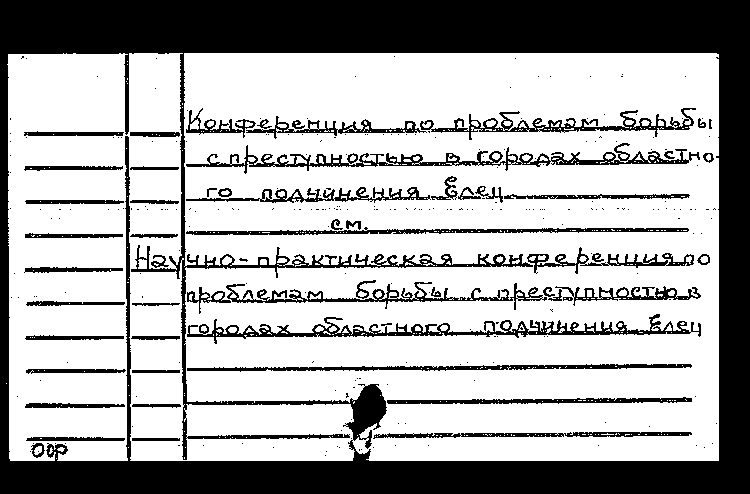 Конференция по проблемам борьбы
с преступностью в городах областно-
го подчинения Елец
см.
Научно-практическая конференция по
проблемам борьбы с преступностью в
городах областного подчинения Елец
оор